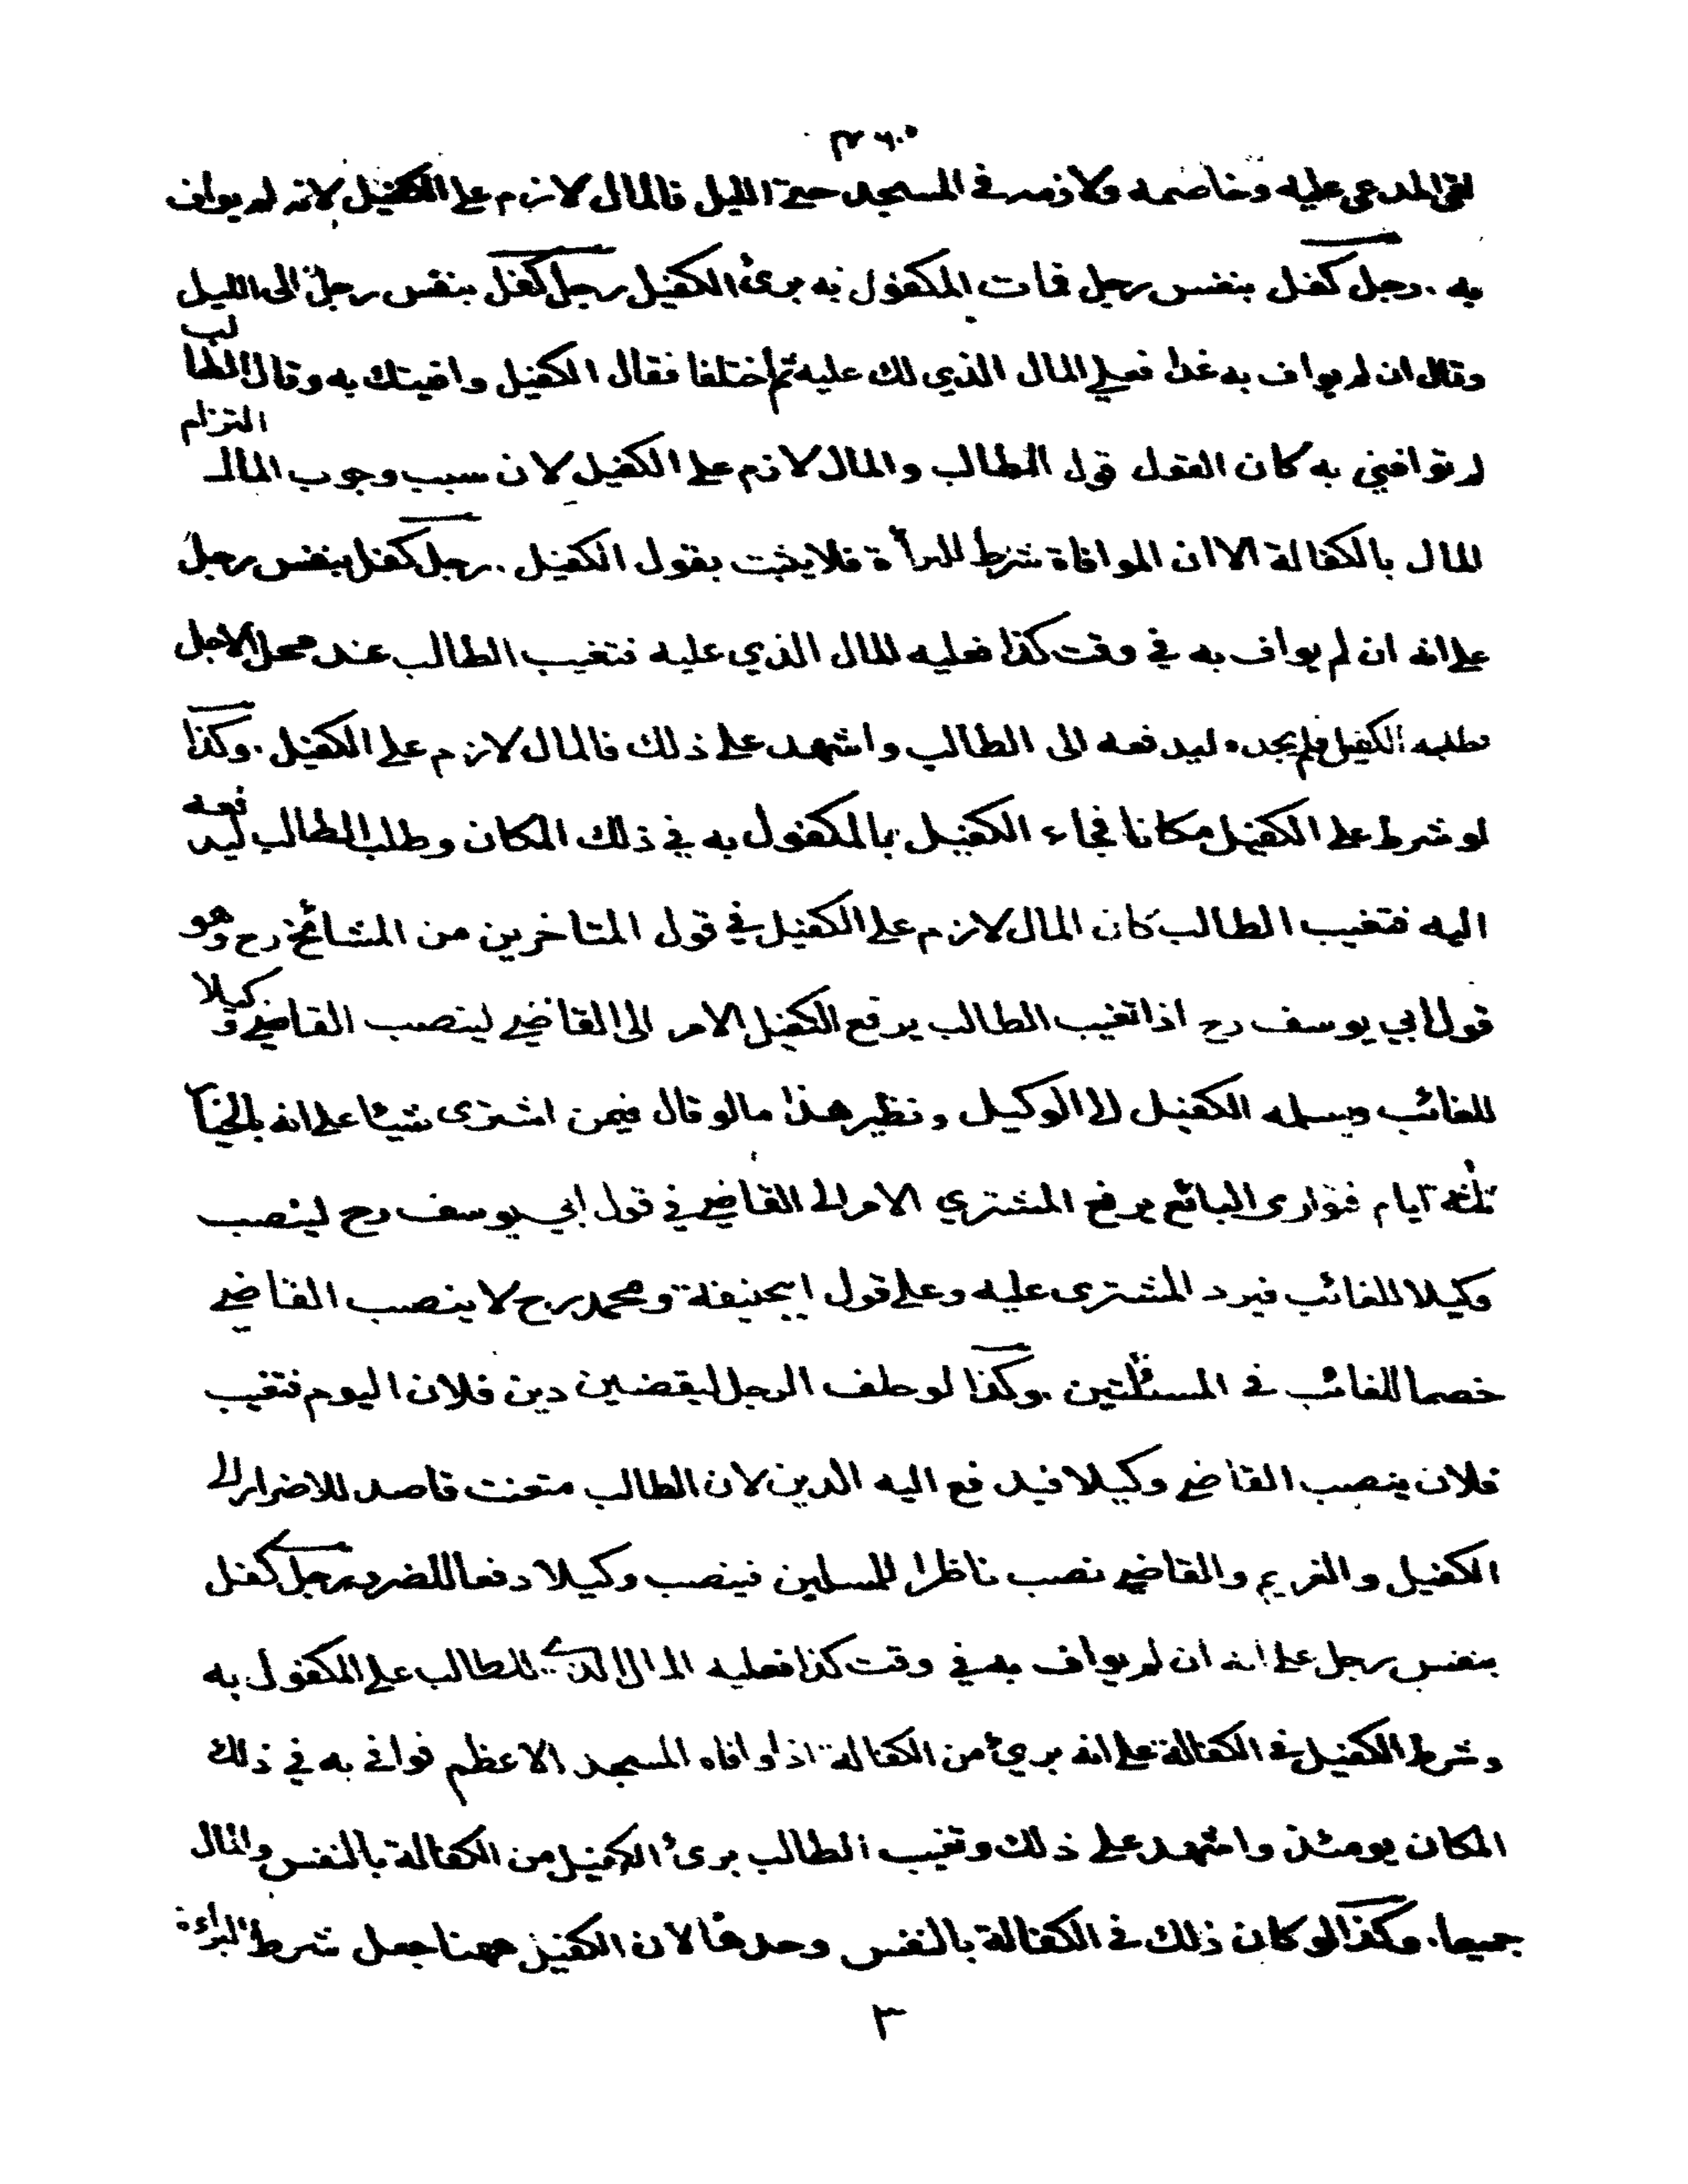 لقي المدعي عليه وخاصمه ولازمه في المسجد حتى الليل فالمال لازم على الكفيل لانه لم يواف
به . رجل كفل بنفس رجل فمات المكفول به برئ الكفيل رجل كفل بنفس رجل الى الليل
وقال ان لم يواف به غدا فعلي المال الذي لك عليه ثم اختلفا فقال الكفيل وافيتك به وقال الطالب
لم توافني به كان القول قول الطالب والمال لازم على الكفيل لان سبب وجوب المال التزام
المال بالكفالة الا ان الموافاة شرط للبرأة فلا يثبت بقول الكفيل . رجل كفل بنفس رجل
على انه ان لم يواف به في وقت كذا فعليه المال الذي عليه فتغيب الطالب عند محل الاجل
فطلبه الكفيل فلم يجده ليدفعه الى الطالب واشهد على ذلك فالمال لازم على الكفيل . وكذا
لو شرط على الكفيل مكانا فجاء الكفيل بالمكفول به في ذلك المكان وطلب الطالب ليدفعه
اليه فتغيب الطالب كان المال لازم على الكفيل في قول المتاخرين من المشائخ رح وهو
قول ابي يوسف رح اذا تغيب الطالب يرفع الكفيل الامر الى القاضي لينصب القاضي وكيلا
للغائب ويسلمه الكفيل الى الوكيل ونظير هذا ما لو قال فيمن اشترى شيئا على انه بالخيار
ثلثة ايام فتوارى البائع يرفع المشتري الامر الى القاضي في قول ابي يوسف رح لينصب
وكيلا للغائب فيرد المشترى عليه وعلى قول ابيحنيفة ومحمد رح لا ينصب القاضي
خصما للغائب في المسئلتين . وكذا لو حلف الرجل ليقضين دين فلان اليوم فتغيب
فلان ينصب القاضي وكيلا فيدفع اليه الدين لان الطالب متعنت قاصد للاضرار الى
الكفيل والغريم والقاضي نصب ناظرا للمسلمين فينصب وكيلا دفعا للضرر رجل كفل
بنفس رجل على انه ان لم يواف به في وقت كذا فعليه المال الذي للطالب على المكفول به
وشرط الكفيل في الكفالة على انه بريئ من الكفالة اذا وافاه المسجد الاعظم فوافى به في ذلك
المكان يومئذ واشهد على ذلك وتغيب الطالب برئ الكفيل من الكفالة بالنفس والمال
جميعا . وكذا لو كان ذلك في الكفالة بالنفس وحدها لان الكفيل ههنا جعل شرط البراءة
٣